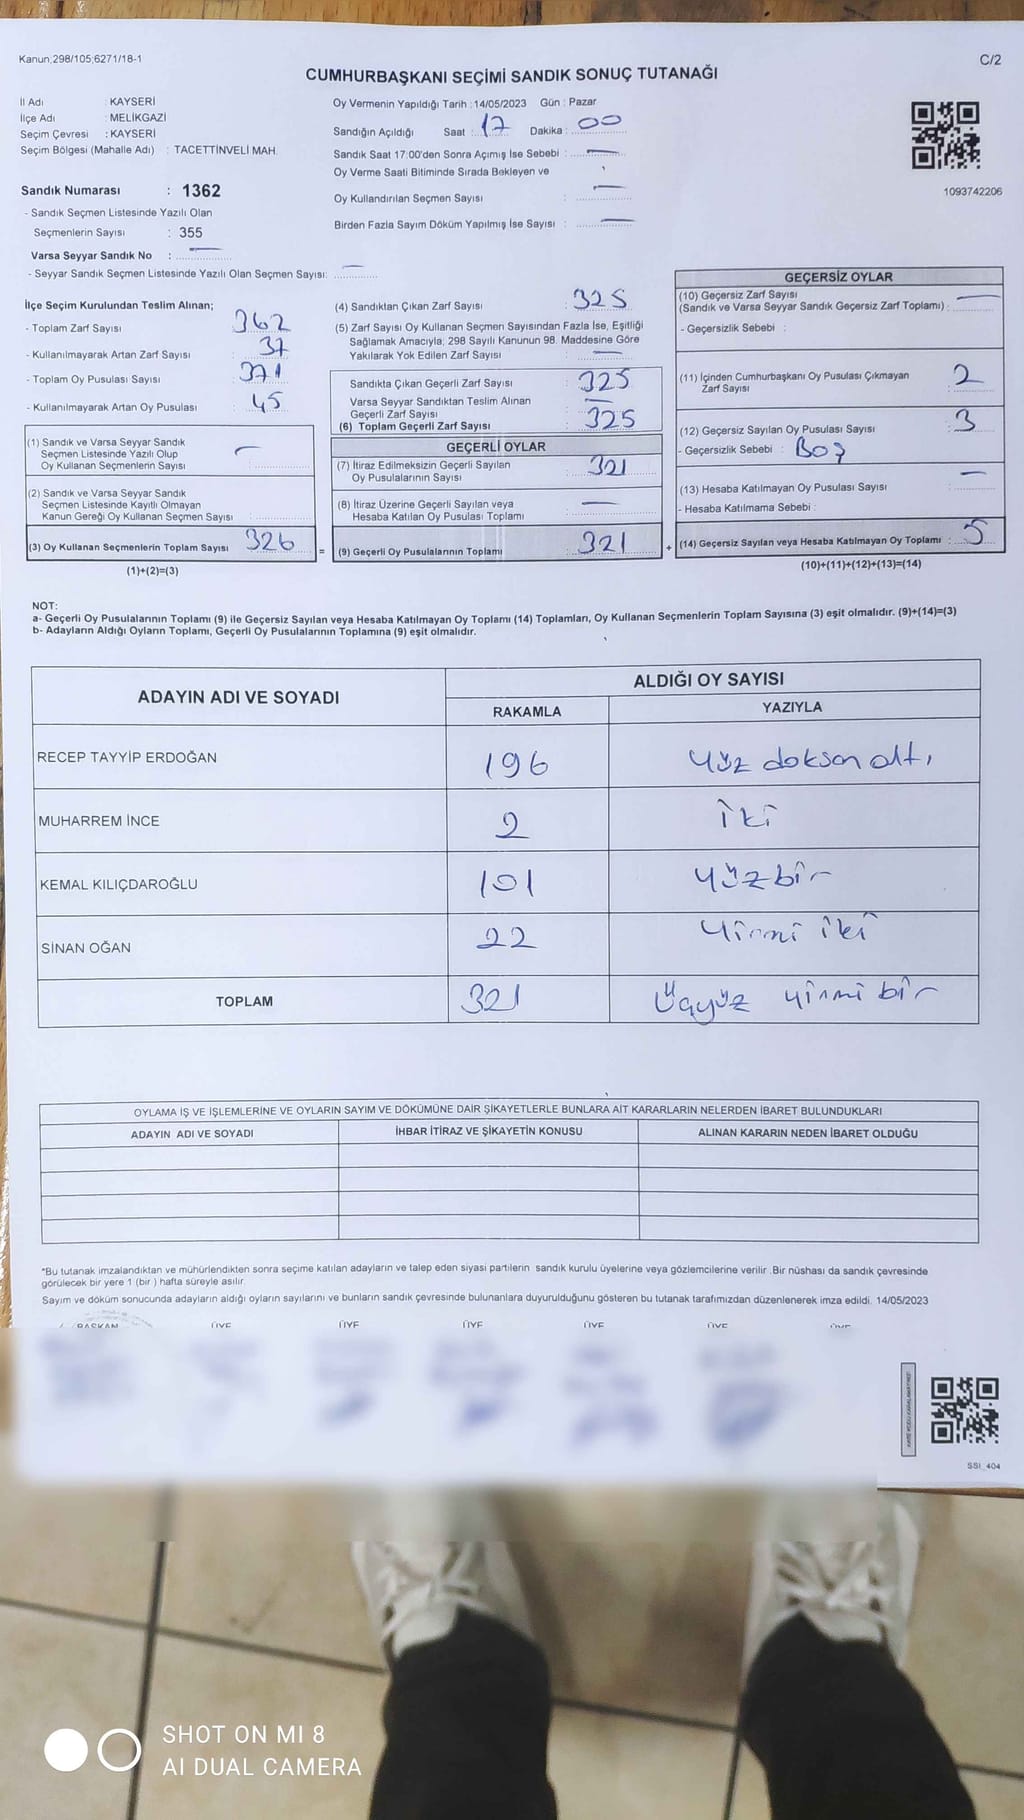 Kanun,298/105;6271/18-1
C/2
CUMHURBAŞKANI SEÇİMİ SANDIK SONUÇ TUTANAĞI
İl Adı : KAYSERİ
İlçe Adı : MELİKGAZİ
Seçim Çevresi : KAYSERİ
Seçim Bölgesi (Mahalle Adı) : TACETTİNVELİ MAH.
Sandık Numarası : 1362
- Sandık Seçmen Listesinde Yazılı Olan
Seçmenlerin Sayısı : 355
Varsa Seyyar Sandık No :
- Seyyar Sandık Seçmen Listesinde Yazılı Olan Seçmen Sayısı:
Oy Vermenin Yapıldığı Tarih : 14/05/2023 Gün : Pazar
Sandığın Açıldığı Saat : 17 Dakika : 00
Sandık Saat 17:00'den Sonra Açımış İse Sebebi :
Oy Verme Saati Bitiminde Sırada Bekleyen ve
Oy Kullandırılan Seçmen Sayısı :
Birden Fazla Sayım Döküm Yapılmış İse Sayısı :
1093742206
İlçe Seçim Kurulundan Teslim Alınan;
- Toplam Zarf Sayısı : 362
- Kullanılmayarak Artan Zarf Sayısı : 37
- Toplam Oy Pusulası Sayısı : 371
- Kullanılmayarak Artan Oy Pusulası : 45
(1) Sandık ve Varsa Seyyar Sandık
Seçmen Listesinde Yazılı Olup
Oy Kullanan Seçmenlerin Sayısı :
(2) Sandık ve Varsa Seyyar Sandık
Seçmen Listesinde Kayıtlı Olmayan
Kanun Gereği Oy Kullanan Seçmen Sayısı :
(3) Oy Kullanan Seçmenlerin Toplam Sayısı : 326
(1)+(2)=(3)
=
(4) Sandıktan Çıkan Zarf Sayısı : 325
(5) Zarf Sayısı Oy Kullanan Seçmen Sayısından Fazla İse, Eşitliği
Sağlamak Amacıyla; 298 Sayılı Kanunun 98. Maddesine Göre
Yakılarak Yok Edilen Zarf Sayısı :
Sandıkta Çıkan Geçerli Zarf Sayısı : 325
Varsa Seyyar Sandıktan Teslim Alınan
Geçerli Zarf Sayısı :
(6) Toplam Geçerli Zarf Sayısı : 325
GEÇERLİ OYLAR
(7) İtiraz Edilmeksizin Geçerli Sayılan
Oy Pusulalarının Sayısı : 321
(8) İtiraz Üzerine Geçerli Sayılan veya
Hesaba Katılan Oy Pusulası Toplamı :
(9) Geçerli Oy Pusulalarının Toplamı : 321
+
GEÇERSİZ OYLAR
(10) Geçersiz Zarf Sayısı
(Sandık ve Varsa Seyyar Sandık Geçersiz Zarf Toplamı) :
- Geçersizlik Sebebi :
(11) İçinden Cumhurbaşkanı Oy Pusulası Çıkmayan
Zarf Sayısı : 2
(12) Geçersiz Sayılan Oy Pusulası Sayısı : 3
- Geçersizlik Sebebi : Boş
(13) Hesaba Katılmayan Oy Pusulası Sayısı :
- Hesaba Katılmama Sebebi :
(14) Geçersiz Sayılan veya Hesaba Katılmayan Oy Toplamı : 5
(10)+(11)+(12)+(13)=(14)
NOT:
a- Geçerli Oy Pusulalarının Toplamı (9) ile Geçersiz Sayılan veya Hesaba Katılmayan Oy Toplamı (14) Toplamları, Oy Kullanan Seçmenlerin Toplam Sayısına (3) eşit olmalıdır. (9)+(14)=(3)
b- Adayların Aldığı Oyların Toplamı, Geçerli Oy Pusulalarının Toplamına (9) eşit olmalıdır.
ADAYIN ADI VE SOYADI
ALDIĞI OY SAYISI
RAKAMLA YAZIYLA
RECEP TAYYİP ERDOĞAN 196 yüz doksan altı
MUHARREM İNCE 2 iki
KEMAL KILIÇDAROĞLU 101 yüzbir
SİNAN OĞAN 22 yirmi iki
TOPLAM 321 üçyüz yirmi bir
OYLAMA İŞ VE İŞLEMLERİNE VE OYLARIN SAYIM VE DÖKÜMÜNE DAİR ŞİKAYETLERLE BUNLARA AİT KARARLARIN NELERDEN İBARET BULUNDUKLARI
ADAYIN ADI VE SOYADI İHBAR İTİRAZ VE ŞİKAYETİN KONUSU ALINAN KARARIN NEDEN İBARET OLDUĞU
*Bu tutanak imzalandıktan ve mühürlendikten sonra seçime katılan adayların ve talep eden siyasi partilerin sandık kurulu üyelerine veya gözlemcilerine verilir. Bir nüshası da sandık çevresinde
görülecek bir yere 1 (bir ) hafta süreyle asılır.
Sayım ve döküm sonucunda adayların aldığı oyların sayılarını ve bunların sandık çevresinde bulunanlara duyurulduğunu gösteren bu tutanak tarafımızdan düzenlenerek imza edildi. 14/05/2023
BAŞKAN ÜYE ÜYE ÜYE ÜYE ÜYE ÜYE
SSI_404
SHOT ON MI 8
AI DUAL CAMERA